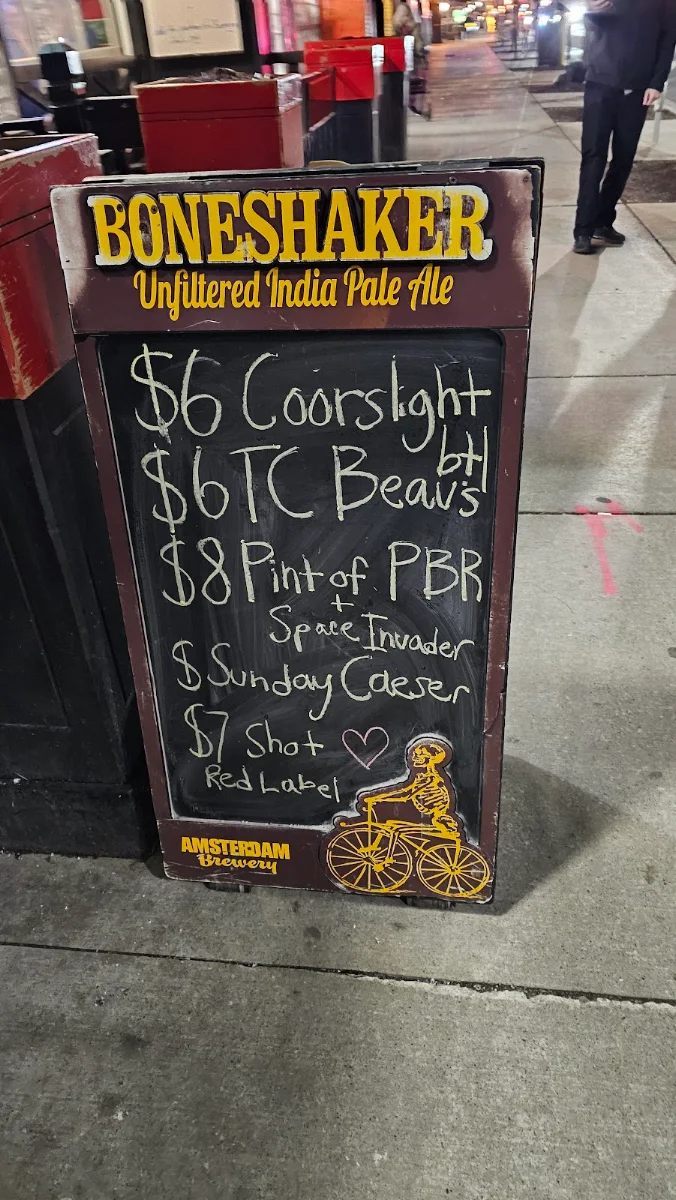 BONESHAKER
Unfiltered India Pale Ale
$6 Coorslight
btl
$6 TC Beavs
$8 Pint of PBR
+
Space Invader
$ Sunday Caeser
$7 Shot
Red Label
AMSTERDAM
Brewery